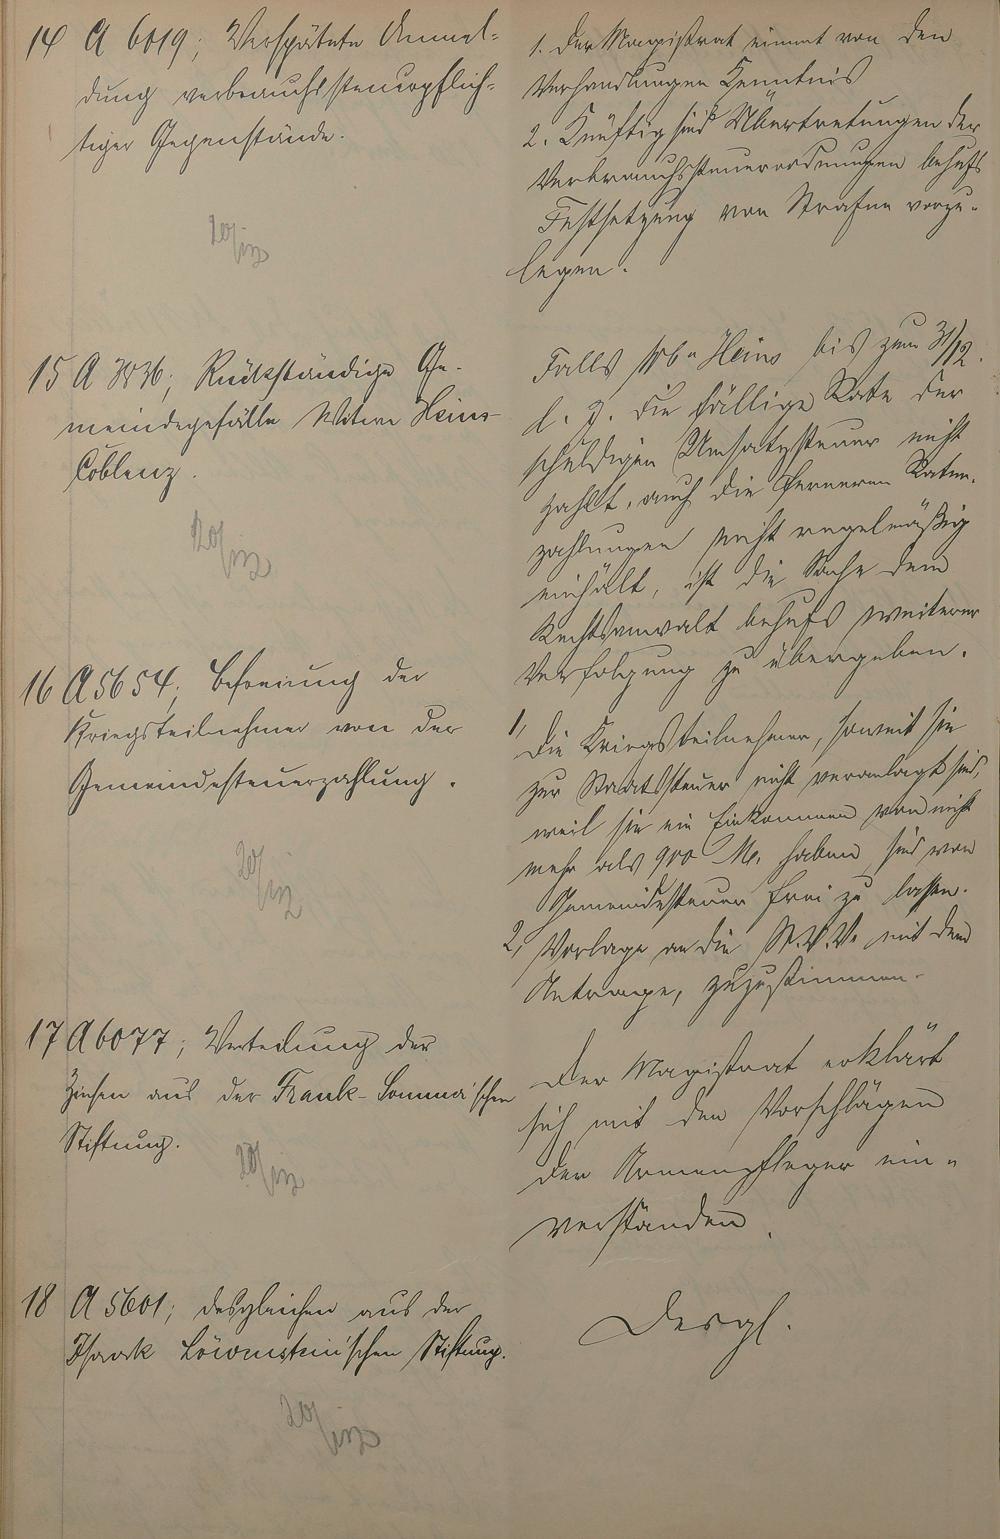 14 A 6019; Verspätete Anmel-
dung verbrauchssteuerpflich-
tiger Gegenstände.
1. Der Magistrat nimmt von den
Verhandlungen Kenntnis
2. Künftig sind Übertretungen der
Verbrauchssteuerordnungen behufs
Festsetzung von Strafen vorzu-
legen.
15 A 3836; Rückständige Ge-
meindegefälle Witwe Heins
Coblenz.
Falls Wwe Heins bis zum 31/12.
l. J. die fällige Rate der
schuldigen Umsatzsteuer nicht
zahlt, auch die ferneren Raten-
zahlungen nicht regelmäßig
einhält, ist die Sache dem
Rechtsanwalt behufs weiterer
Verfolgung zu übergeben.
16 A 5654; Befreiung der
Kriegsteilnehmer von der
Gemeindesteuerzahlung.
1, Die Kriegsteilnehmer, soweit sie
zur Staatssteuer nicht veranlagt sind,
weil sie ein Einkommen von nicht
mehr als 900 M. haben, sind von
Gemeindesteuer frei zu lassen.
2, Vorlage an die St.V.V. mit dem
Antrage, zuzustimmen.
17 A 6077; Verteilung der
Zinsen aus der Frank-Lomma'schen
Stiftung.
Der Magistrat erklärt
sich mit den Vorschlägen
der Armenpfleger ein-
verstanden.
18 A 5601; desgleichen aus der
Isaak Löwenstein'schen Stiftung.
Desgl.